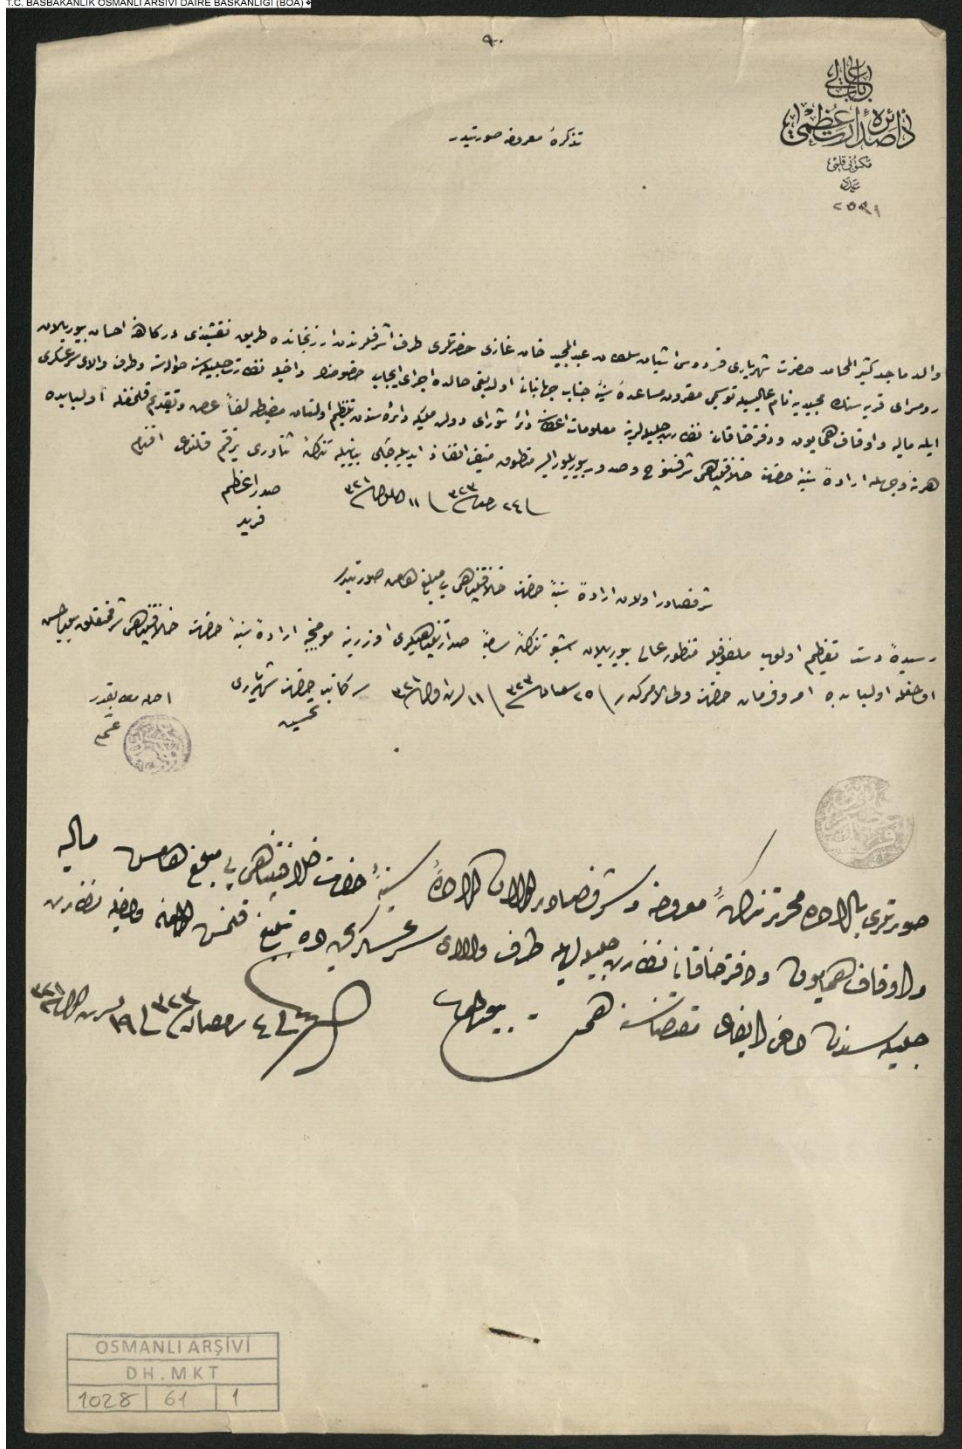 T.C. BAŞBAKANLIK OSMANLI ARŞİVİ DAİRE BAŞKANLIĞI (BOA)
٩٠
باب عالى
دائرهٔ صدارت عظمى
مكتوبى قلمى
عدد
٢٥٩٩
تذكرهٔ معروضه صورتيدر
والد ماجد كثير المحامد حضرت شهريارى فردوس آشيان سلطان عبد المجيد خان غازى حضرتلرى طرف اشرفلرندن ارزنجانده طريق نقشبندى دركاهنه احسان بيوريلان
روسراى قريه سنك مجيديه نام عاليسيله توسيمى مقرون مساعدهٔ سنيهٔ جناب جهانبانى اولديغى حالده اجراى ايجابى خصوصنك داخليه نظارت جليله سنه حواله سى وطرف والاى سرعسكرى
ايله ماليه واوقاف همايون ودفتر خاقانى نظارت جليله لرينه معلومات اعطاسنه دائر شوراى دولت ملكيه دائره سندن تنظيم اولنان مضبطه لفاً عرض وتقديم قلنمغله اولبابده
هر نه وجهله ارادهٔ سنيهٔ حضرت خلافتپناهى شرفسنوح وصدور بيوريلور ايسه منطوق منيفى انفاذ ايديله جكى بيانيله تذكرهٔ ثناورى ترقيم قلندى افندم
٢٤ رجب سنه ٣٢٣ ١١ ايلول سنه ٣٢١
صدر اعظم
فريد
شرفصادر اولان ارادهٔ سنيهٔ حضرت خلافتپناهى يى مبلغ هامش صورتيدر
رسيدهٔ دست تعظيم اولوب ملفوفيله منظور عالى بيوريلان اشبو تذكرهٔ ساميهٔ صدارتپناهيلرى اوزرينه موجبنجه ارادهٔ سنيهٔ حضرت خلافتپناهى شرفمتعلق بيورلمش
اولمغله اولبابده امر وفرمان حضرت ولى الامركدر ٢٥ شعبان سنه ٣٢٣ ١١ تشرين اول سنه ٣٢١
سر كاتب حضرت شهريارى
تحسين
اصلنه مطابقدر
صورتلرى بالاده محرر تذكرهٔ معروضه وشرفصادر اولان ارادهٔ سنيهٔ حضرت خلافتپناهى يى مبلغ هامش ماليه
واوقاف همايون ودفتر خاقانى نظارت جليله لريله طرف والاى سرعسكرى يه ده تبليغ قلنمش اولمغله داخليه نظارت
جليله سندن دخى ايفاى مقتضاسنه همت
٤ رمضان سنه ٣٢٣ ١٩ تشرين اول سنه ٣٢١
OSMANLI ARŞİVİ
DH.MKT
1028 61 1